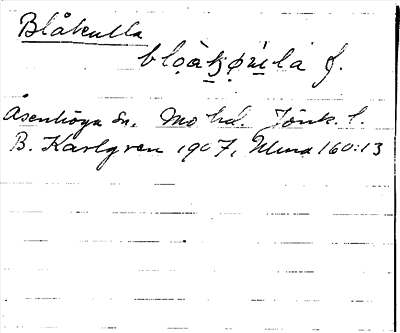 Blåkulla
f.
Åsenhöga sn. Mo hd. Jönk. l.
B. Karlgren 1907, Ulma 160:13